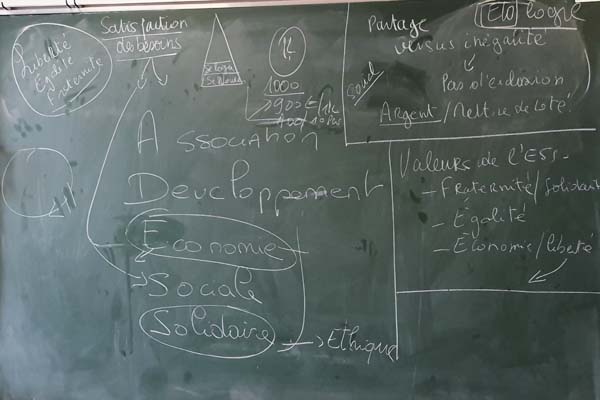 Liberté
Égalité
Fraternité
Satisfaction
des besoins
Se loger
1000
900€
Association
Développement
Economie
Sociale
Solidaire → Ethique
Partage
versus inégalité
social
Pas d'exclusion
Argent / Mettre de côté
Valeurs de l'ESS
- Fraternité/Solidarité
- Égalité
- Economie/liberté